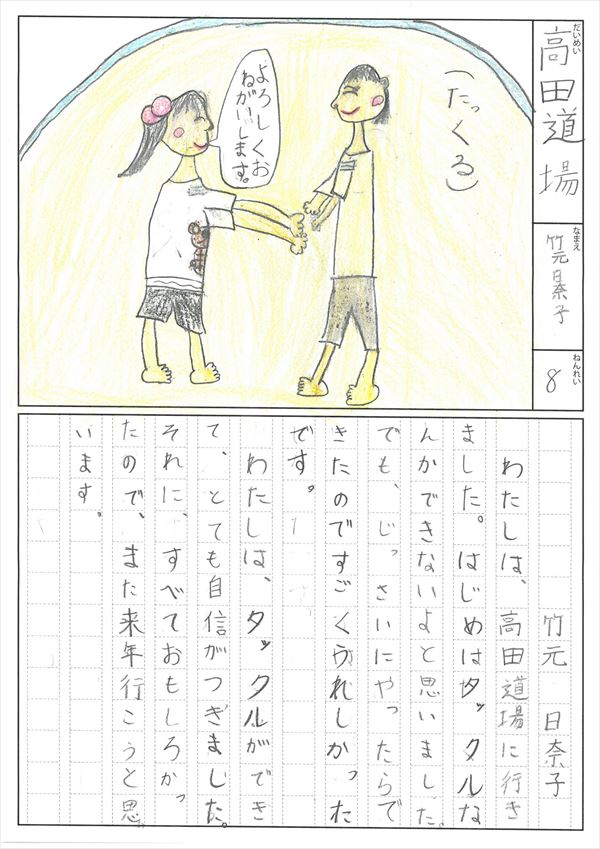 だいめい
高田道場
なまえ
竹元日奈子
ねんれい
8
(たっくる)
よろしくお
ねがいします。
竹元 日奈子
わたしは、高田道場に行き
ました。はじめはタックルな
んかできないよと思いました。
でも、じっさいにやったらで
きたのですごくうれしかった
です。
わたしは、タックルができ
て、とても自信がつぎました。
それに、すべておもしろかっ
たので、また来年行こうと思
います。